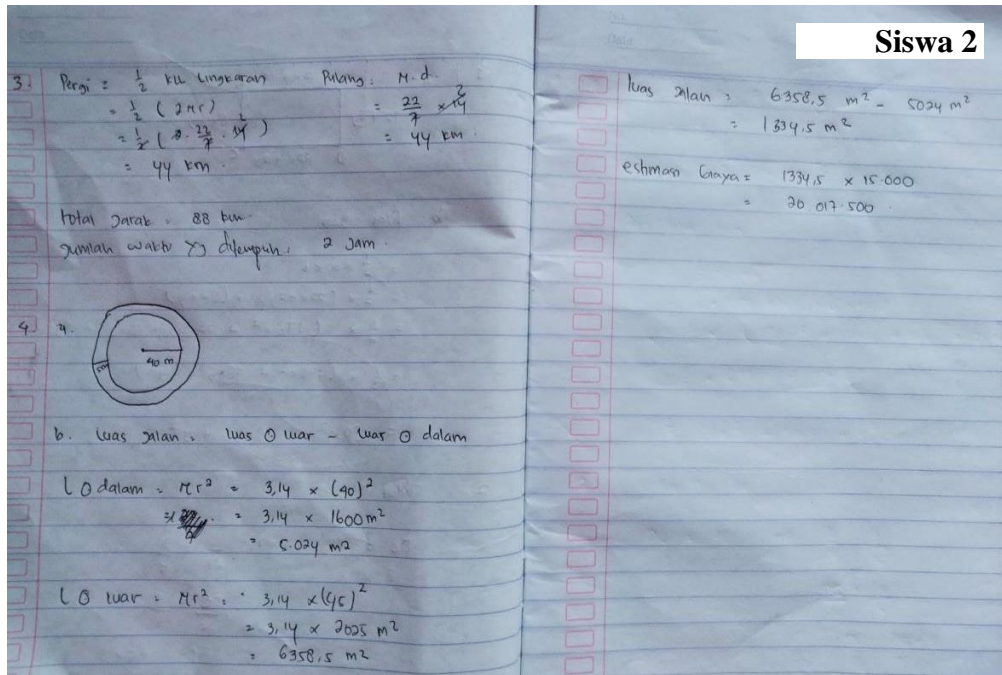 Siswa 2
3. Pergi = 1/2 kll lingkaran
= 1/2 (2πr)
= 1/2 (2 · 22/7 · 14 2)
= 44 km.
Pulang: π.d.
= 22/7 × 14 2
= 44 km.
total jarak = 88 km.
Jumlah waktu yg ditempuh = 2 jam.
4. a.
5m
40 m
b. luas jalan = luas O luar - luas O dalam
L O dalam = πr² = 3,14 × (40)²
= 3,14 × 1600 m²
= 5.024 m2
L O luar = πr² = 3,14 × (45)²
= 3,14 × 2025 m²
= 6358,5 m2
luas jalan = 6358,5 m² - 5024 m²
= 1334,5 m²
estimasi biaya = 1334,5 × 15.000
= 20 017.500